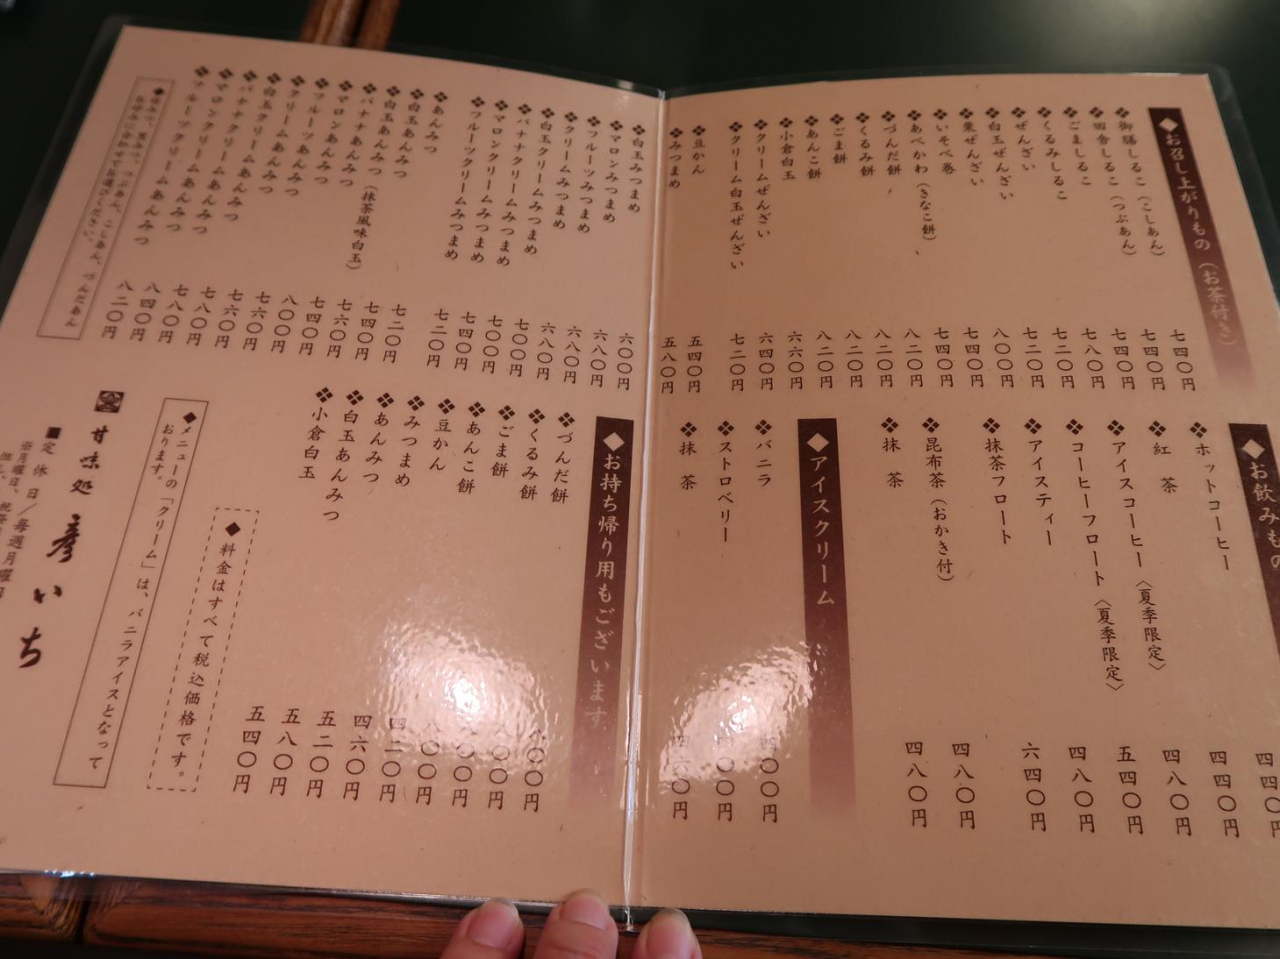 ◆お召し上がりもの（お茶付き）
❖御膳しるこ（こしあん） 七四〇円
❖田舎しるこ（つぶあん） 七四〇円
❖ごましるこ 七四〇円
❖くるみしるこ 七八〇円
❖ぜんざい 七二〇円
❖白玉ぜんざい 七二〇円
❖栗ぜんざい 八〇〇円
❖いそべ巻 七四〇円
❖あべかわ（きなこ餅） 七四〇円
❖づんだ餅 八二〇円
❖くるみ餅 八二〇円
❖ごま餅 八二〇円
❖あんこ餅 八二〇円
❖小倉白玉 六六〇円
❖クリームぜんざい 六四〇円
❖クリーム白玉ぜんざい 七二〇円
❖豆かん 五四〇円
❖みつまめ 五八〇円
❖白玉みつまめ 六〇〇円
❖マロンみつまめ 六八〇円
❖フルーツみつまめ 六八〇円
❖クリームみつまめ 六八〇円
❖白玉クリームみつまめ 七〇〇円
❖バナナクリームみつまめ 七〇〇円
❖マロンクリームみつまめ 七四〇円
❖フルーツクリームみつまめ 七二〇円
❖あんみつ 七二〇円
❖白玉あんみつ 七四〇円
❖白玉あんみつ（抹茶風味白玉） 七六〇円
❖バナナあんみつ 七四〇円
❖マロンあんみつ 八〇〇円
❖フルーツあんみつ 七六〇円
❖クリームあんみつ 七六〇円
❖白玉クリームあんみつ 七八〇円
❖バナナクリームあんみつ 七八〇円
❖マロンクリームあんみつ 八四〇円
❖フルーツクリームあんみつ 八二〇円
つぶあん、こしあん、づんだあん
お選びください。
◆お飲みもの
❖ホットコーヒー 四四〇円
❖紅茶 四四〇円
❖アイスコーヒー〈夏季限定〉 四八〇円
❖コーヒーフロート〈夏季限定〉 五四〇円
❖アイスティー 四八〇円
❖抹茶フロート 六四〇円
❖昆布茶（おかき付） 四八〇円
❖抹茶 四八〇円
◆アイスクリーム
❖バニラ
❖ストロベリー
❖抹茶
◆お持ち帰り用もございます
❖づんだ餅
❖くるみ餅
❖ごま餅
❖あんこ餅
❖豆かん 四二〇円
❖みつまめ 四六〇円
❖あんみつ 五二〇円
❖白玉あんみつ 五八〇円
❖小倉白玉 五四〇円
◆料金はすべて税込価格です。
◆メニューの「クリーム」は、バニラアイスとなって
おります。
甘味処 彦いち
■定休日／毎週月曜日